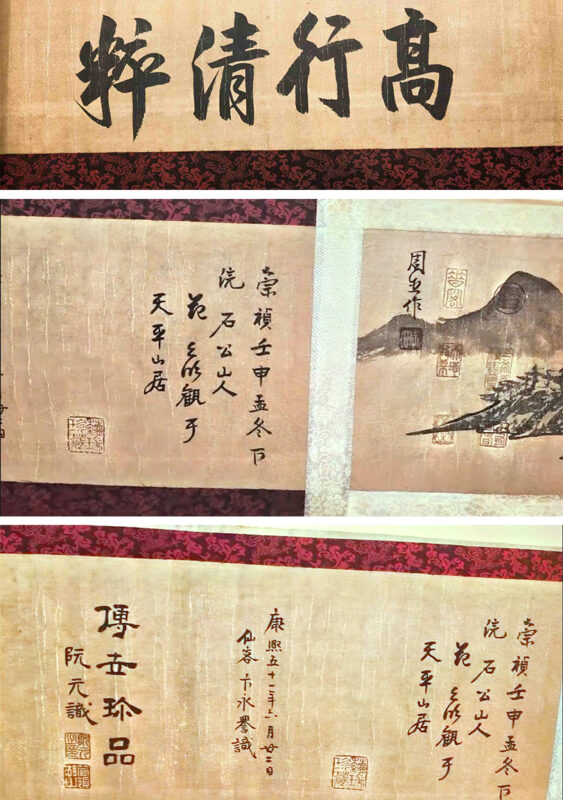 髙行清粹
周臣作
崇禎壬申孟冬下
浣石公山人
范允臨觀于
天平山居
崇禎壬申孟冬下
浣石公山人
范允臨觀于
天平山居
康熙五十一年六月廿二日
仙客卞永譽識
傳世珍品
阮元識